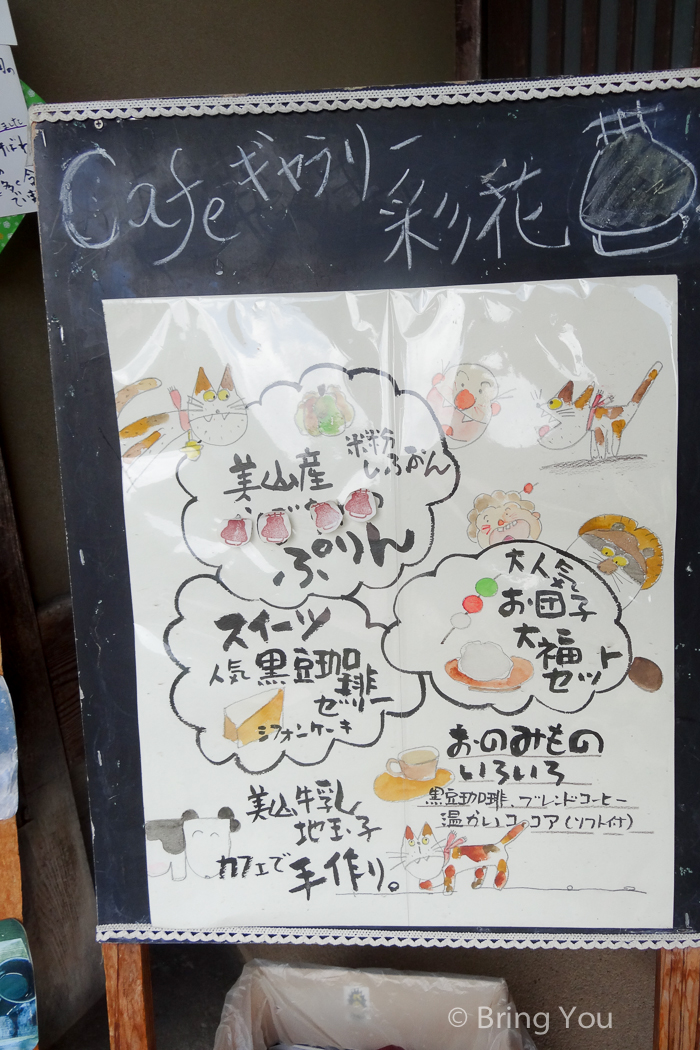 Cafe ギャラリー 彩花
米粉
美山産
ぷりん
大人気
お団子
大福
セット
スイーツ
人気 黒豆珈琲
ゼリー
シフォンケーキ
おのみもの
いろいろ
黒豆珈琲、ブレンドコーヒー
温かいココア(ソフト付)
美山牛乳
地玉子
カフェで
手作り。
© Bring You